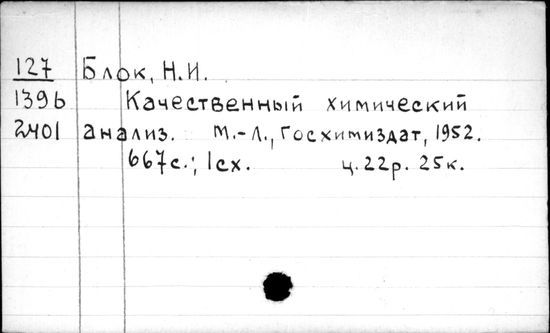 127 Блок, Н.И.
139б Качественный химический
2401 анализ. М.-Л., Госхимиздат, 1952.
667с.; 1сх. ц. 22р. 25к.